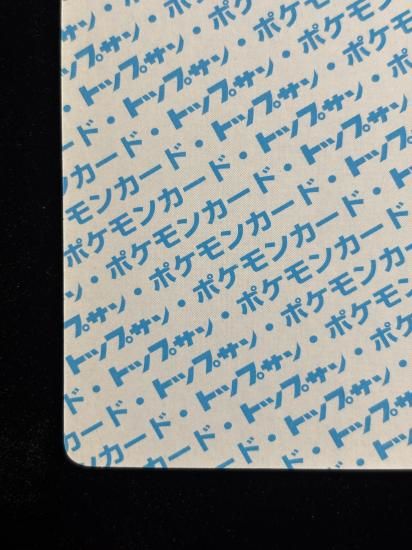 サン・ポケモン
・トップサン・ポケモン
ド・トップサン・ポケモ
カード・トップサン・ポケ
モンカード・トップサン・ポ
ポケモンカード・トップサン・
・ポケモンカード・トップサン
ン・ポケモンカード・ト
プサン・ポケモンカード・
トップサン・ポケモンカード
・トップサン・ポケモンカ
ード・トップサン・ポケモン
カード・トップサン・
ンカード・トップサン